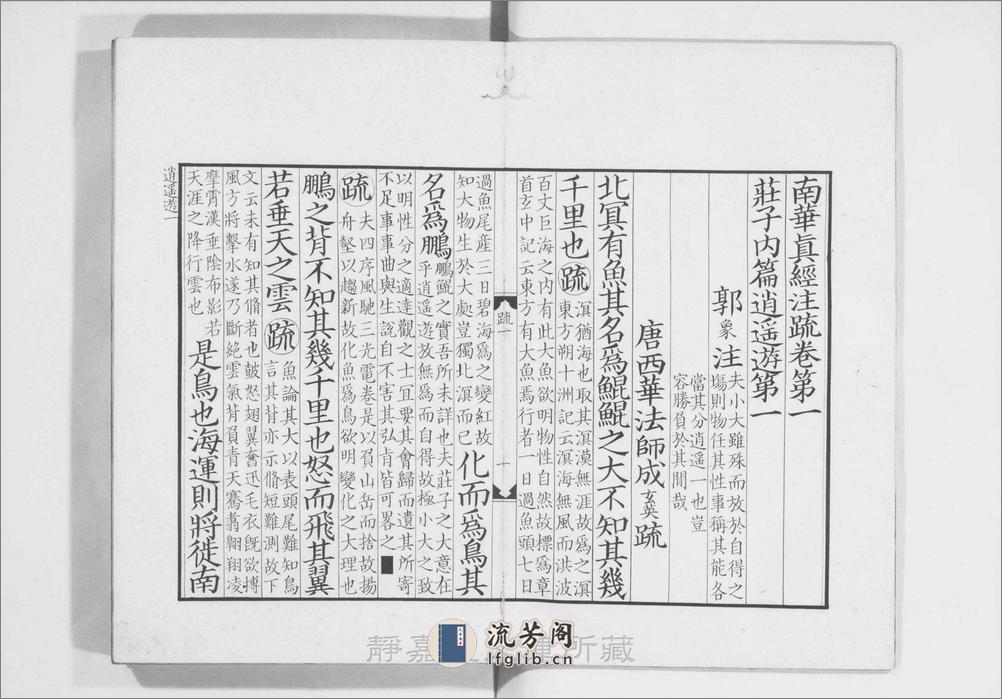 南華眞經注疏卷第一
莊子内篇逍遥遊第一
郭象注
夫小大雖殊而放於自得之
塲則物任其性事稱其能各
當其分逍遥一也豈
容勝負於其間哉
唐西華法師成玄英疏
北冥有魚其名爲鯤鯤之大不知其幾
千里也疏
溟猶海也取其溟漠無涯故爲之溟
東方朔十洲記云溟海無風而洪波
百丈巨海之内有此大魚欲明物性自然故標爲章
首玄中記云東方有大魚焉行者一日過魚頭七日
疏一
十
過魚尾産三日碧海爲之變紅故
知大物生於大處豈獨北溟而已
化而爲鳥其
名爲鵬
鵬鯤之實吾所未詳也夫莊子之大意在
乎逍遥遊放無爲而自得故極小大之致
以明性分之適達觀之士宜要其會歸而遺其所寄
不足事事曲與生說自不害其弘旨皆可畧之
疏
夫四序風馳三光電卷是以負山岳而捨故揚
舟壑以趨新故化魚爲鳥欲明變化之大理也
鵬之背不知其幾千里也怒而飛其翼
若垂天之雲疏
魚論其大以表頭尾難知鳥
言其背亦示脩短難測故下
文云未有知其脩者也皷怒翅翼奮迅毛衣旣欲摶
風方將擊水遂乃斷絶雲氣背負青天騫翥翺翔凌
摩霄漢垂陰布影若
天涯之降行雲也
是鳥也海運則將徙南
逍遥遊一
靜嘉
所藏
流芳阁
lfglib.cn